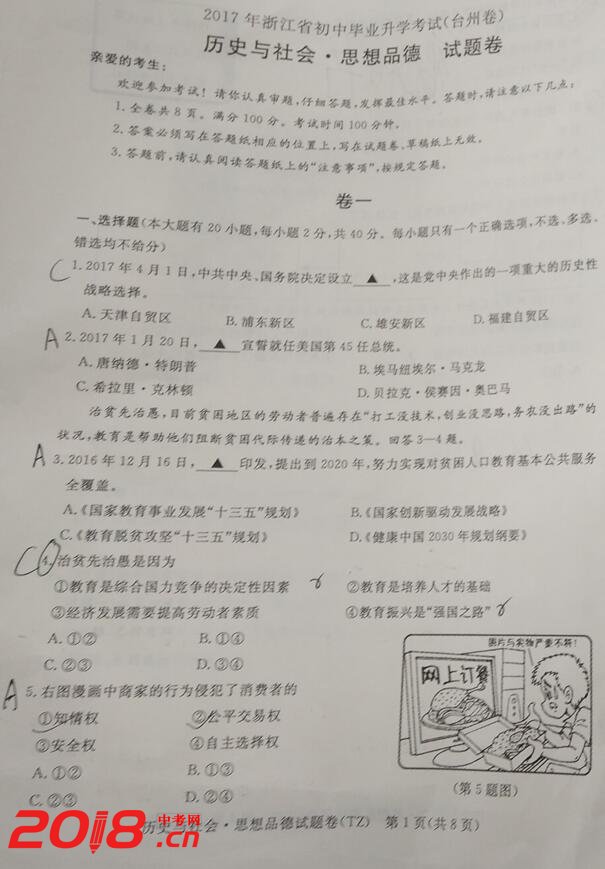 2017年浙江省初中毕业升学考试(台州卷)
历史与社会·思想品德 试题卷
亲爱的考生:
欢迎参加考试!请你认真审题,仔细答题,发挥最佳水平。答题时,请注意以下几点:
1.全卷共8页。满分100分。考试时间100分钟。
2.答案必须写在答题纸相应的位置上,写在试题卷、草稿纸上无效。
3.答题前,请认真阅读答题纸上的“注意事项”,按规定答题。
卷一
一、选择题(本大题有20小题,每小题2分,共40分。每小题只有一个正确选项,不选、多选、
错选均不给分)
C 1.2017年4月1日,中共中央、国务院决定设立 ▲ ,这是党中央作出的一项重大的历史性
战略选择。
A.天津自贸区 B.浦东新区 C.雄安新区 D.福建自贸区
A 2.2017年1月20日, ▲ 宣誓就任美国第45任总统。
A.唐纳德·特朗普 B.埃马纽埃尔·马克龙
C.希拉里·克林顿 D.贝拉克·侯赛因·奥巴马
治贫先治愚,目前贫困地区的劳动者普遍存在“打工没技术,创业没思路,务农没出路”的
状况,教育是帮助他们阻断贫困代际传递的治本之策。回答3—4题。
A 3.2016年12月16日, ▲ 印发,提出到2020年,努力实现对贫困人口教育基本公共服务
全覆盖。
A.《国家教育事业发展“十三五”规划》 B.《国家创新驱动发展战略》
C.《教育脱贫攻坚“十三五”规划》 D.《健康中国2030年规划纲要》
C 4.治贫先治愚是因为
①教育是综合国力竞争的决定性因素 ②教育是培养人才的基础
③经济发展需要提高劳动者素质 ④教育振兴是“强国之路”
A.①② B.①④
C.②③ D.③④
A 5.右图漫画中商家的行为侵犯了消费者的
①知情权 ②公平交易权
③安全权 ④自主选择权
A.①② B.①③
C.②③ D.②④
图片与实物严重不符!
网上订餐
(第5题图)
历史与社会·思想品德试题卷(TZ) 第1页(共8页)
2018.cn
中考网